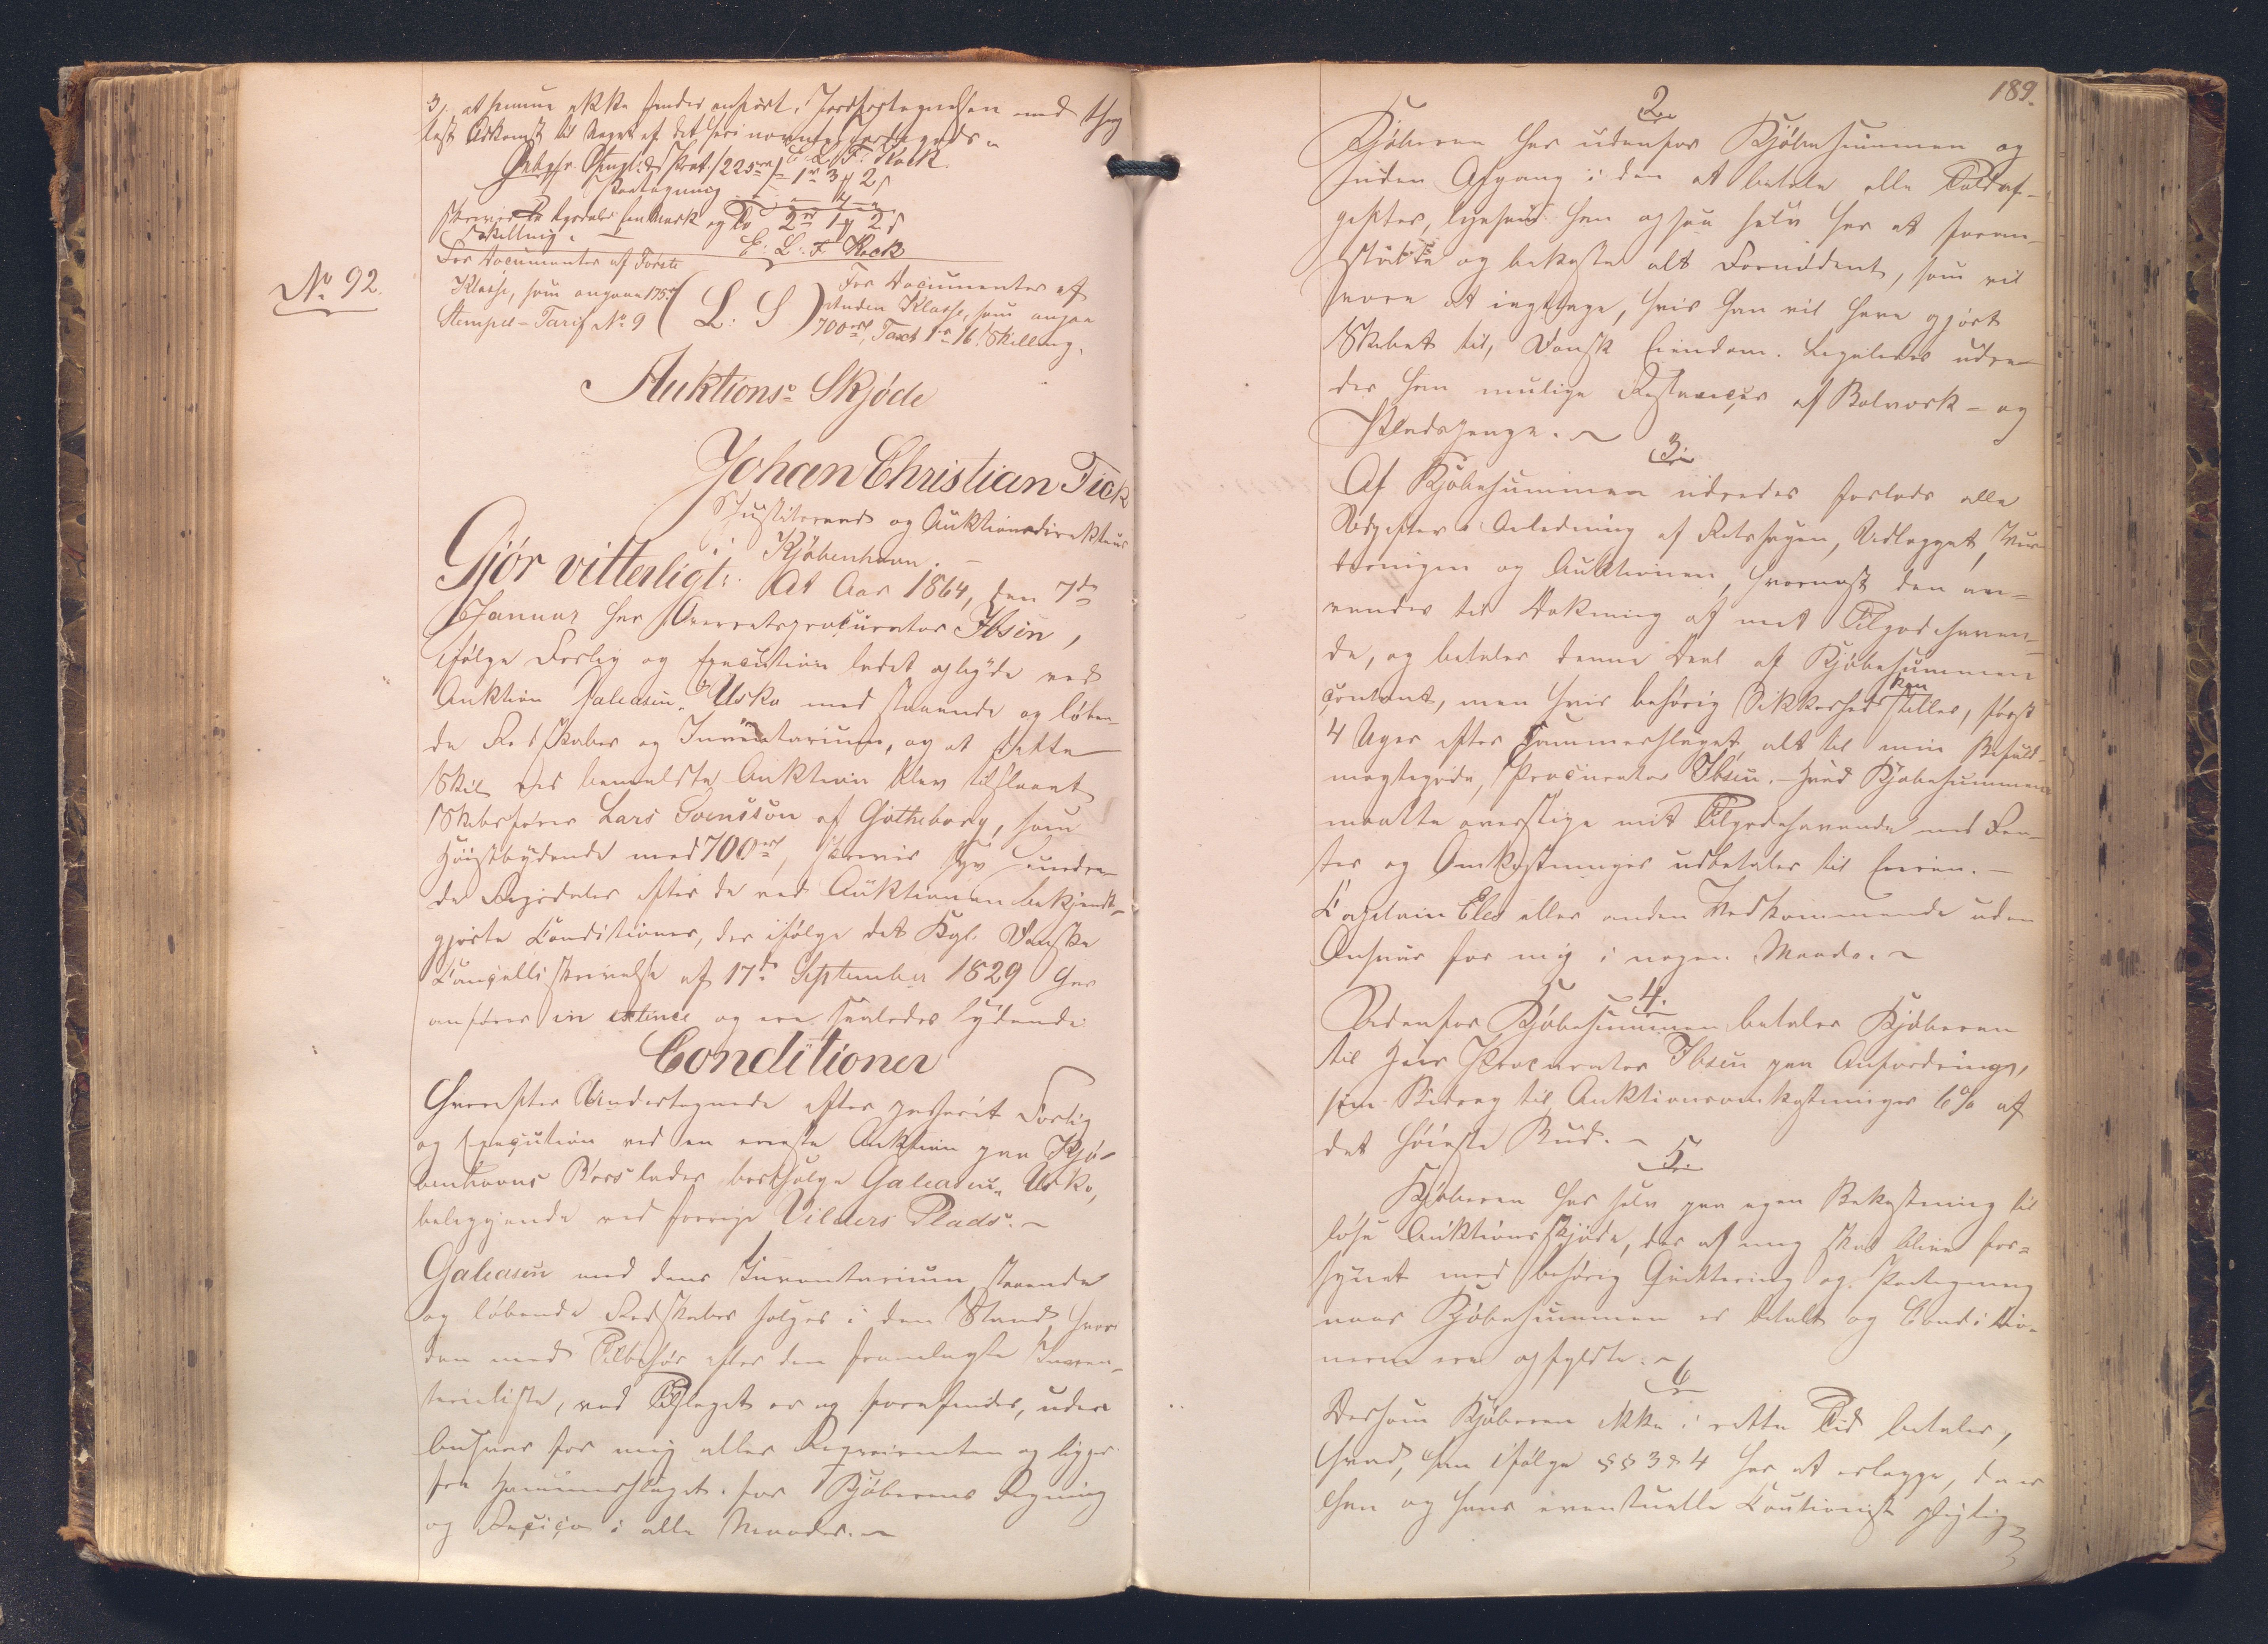 3, at samme ikke findes anført i Jordfortegnelsen med thing
læst Adkomst til Noget af det heri nævnte Jordegods.
E. L. F. Kock.
Gebyhr. Stempl. & Skat. /225 rd/ 1 rd 3 # 2 s
Paategning
skrives To Rigsdaler fem Mark og To 2 rd 1 # 2 s
Skilling.
E: L: F. Kock
For Documenter af Første
Klasse, som angaae 175 rd
Stempel-Tarif No. 9
(L: S)
For Documenter af
Anden Klasse, som angaae
700 rd, Taxt 1 rd 16 Skilling.
No. 92.
Auktions-Skjøde
Johan Christian Fick
Justitsraad og Auktionsdirekteur
i Kjøbenhavn.
Gjør vitterligt: At Aar 1864, den 7de
Januar har Overretsprocurator Ibsen,
ifølge Forlig og Execution ladet opbyde ved
Auktion Galeasen "Usko med staaende og løben-
de Redskaber og Inventarium, og at dette
Skib ved bemeldte Auktion blev tilslaaet
Skibsfører Lars Svensson af Gøtheborg, som
Høistbydende med 700 rd, skrives Syv Hundre-
de Rigsdaler efter de ved Auktionen bekjendt-
gjorte Conditioner, der ifølge det Kgl. Danske
Cancelliskrivelse af 17de September 1829 her
anføres in extenso og ere saaledes lydende:
Conditioner
Hvorefter Undertegnede efter Forlig
og Execution ved en eneste Auktion paa Kjø-
benhavns Børs lader bortsælge Galeasen "Usko,
beliggende ved forrige Vilders Plads.
1.
Galeasen med dens Inventarium, staaende
og løbende Redskaber sælges i den Stand, hvori
den med Tilbehør efter den fremlagte Inven-
tarieliste, ved Tilslaget er og forefindes, uden
Ansvar for mig eller Reqvirenten og ligger
fra Hammerslaget for Kjøberens Regning
og Risico i alle Maader.
189.
2.
Kjøberen har udenfor Kjøbesummen og
uden Afgang i den at betale alle Toldaf-
gifter, ligesom han ogsaa selv har at foran-
stalte og bekoste alt Fornødent, som vil
være at iagttage, hvis han vil have gjort
Skibet til Dansk Eiendom. Ligeledes udre-
der han mulige Restancer af Bolværk- og
Pladspenge.
3.
Af Kjøbesummen udredes forlods alle
Udgifter i Anledning af Retssagen, Udlægget, Vur-
deringen og Auktionen, hvornæst den an-
vendes til Dækning af mit Tilgodehaven-
de, og betales denne Deel af Kjøbesummen
contant, men hvis behørig Sikkerhed kan stilles, først
4 Uger efter Hammerslaget alt til min Befuld-
mægtigede, Procurator Ibsen. – Hvad Kjøbesummen
maatte overstige mit Tilgodehavende med Ren-
ter og Omkostninger udbetales til Eieren.
Capitain Elo eller anden Vedkommende uden
Ansvar for mig i nogen Maade.
4.
Udenfor Kjøbesummen betaler Kjøberen
til Herr Procurator Ibsen paa Anfordring,
som Bidrag til Auktionsomkostninger 6 % af
det høieste Bud.
5.
Kjøberen har selv paa egen Bekostning at
løse Auktionsskjøde, der af mig skal blive for-
synet med behørig Qvittering og Paategning
naar Kjøbesummen er betalt og Conditio-
nerne ere opfyldte.
6
Dersom Kjøberen ikke i rette Tid betaler,
hvad han ifølge §§ 3 & 4 har at erlægge, da er
han og hans eventuelle Cautionist pligtig